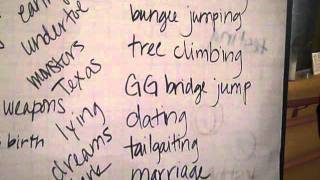 undertoe
monsters
Texas
weapons
lying
birth
dreams
bungee jumping
tree climbing
GG bridge jump
dating
tailgaiting
marriage